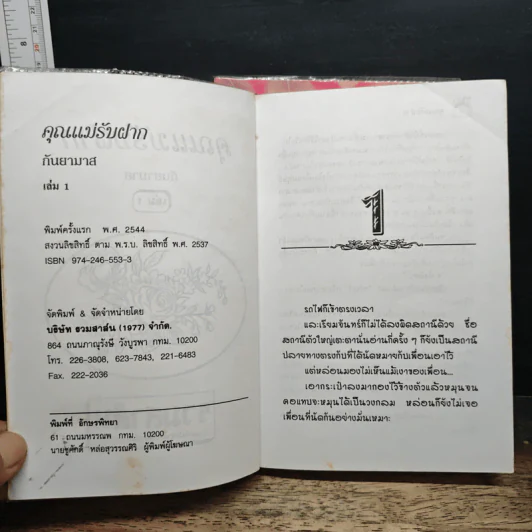 คุณแม่รับฝาก
กันยามาส
เล่ม 1
พิมพ์ครั้งแรก พ.ศ. 2544
สงวนลิขสิทธิ์ ตาม พ.ร.บ. ลิขสิทธิ์ พ.ศ. 2537
ISBN 974-246-553-3
จัดพิมพ์ & จัดจำหน่ายโดย
บริษัท รวมสาส์น (1977) จำกัด.
864 ถนนภาณุรังษี วังบูรพา กทม. 10200
โทร. 226-3808, 623-7843, 221-6483
Fax. 222-2036
พิมพ์ที่ อักษรพิทยา
61 ถนนมหรรณพ กทม. 10200
นายชูศักดิ์ หล่อสุวรรณศิริ ผู้พิมพ์ผู้โฆษณา
1
รถไฟก็เข้าตรงเวลา
และเรียมจันทร์ก็ไม่ได้ลงผิดสถานีด้วย ชื่อ
สถานีตัวใหญ่เตะตานั่นอ่านกี่ครั้ง ๆ ก็ยังเป็นสถานี
ปลายทางตรงกับที่ได้นัดหมายกับเพื่อนเอาไว้
แต่หล่อนมองไม่เห็นแม้เงาของเพื่อน...
เอากระเป๋าลงมากองไว้ข้างตัวแล้วหมุนจน
คอแทบจะหมุนได้เป็นวงกลม หล่อนก็ยังไม่เจอ
เพื่อนที่นัดกันอย่างมั่นเหมาะ